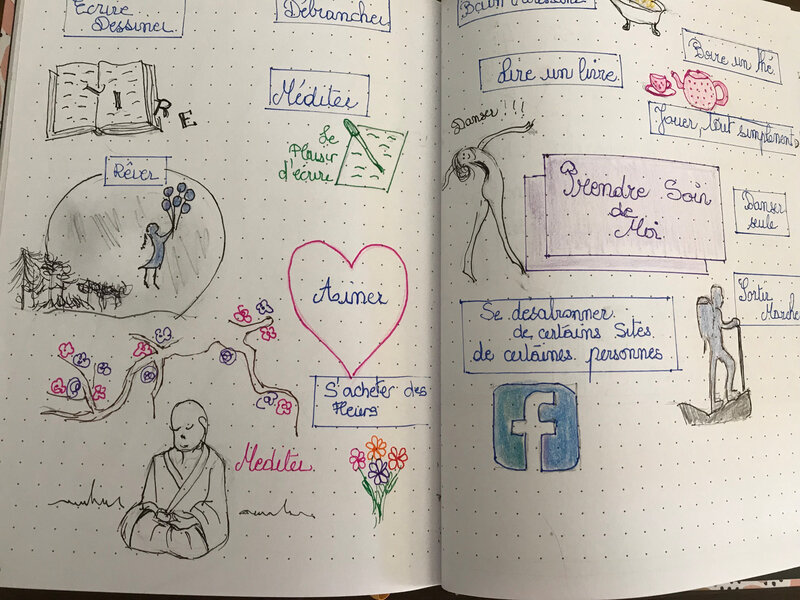 Ecrire
Dessiner.
Débrancher
Méditer
LIRE
Le
Plaisir
d'écrire
Rêver
Aimer
S'acheter des
fleurs
Mediter.
Lire un livre.
Boire un thé.
Danser !!!
Jouer, tout simplement
Prendre Soin
de
Moi
Danser
seule
Se désabonner
de certains Sites.
de certaines personnes
Sortir
Marcher
f